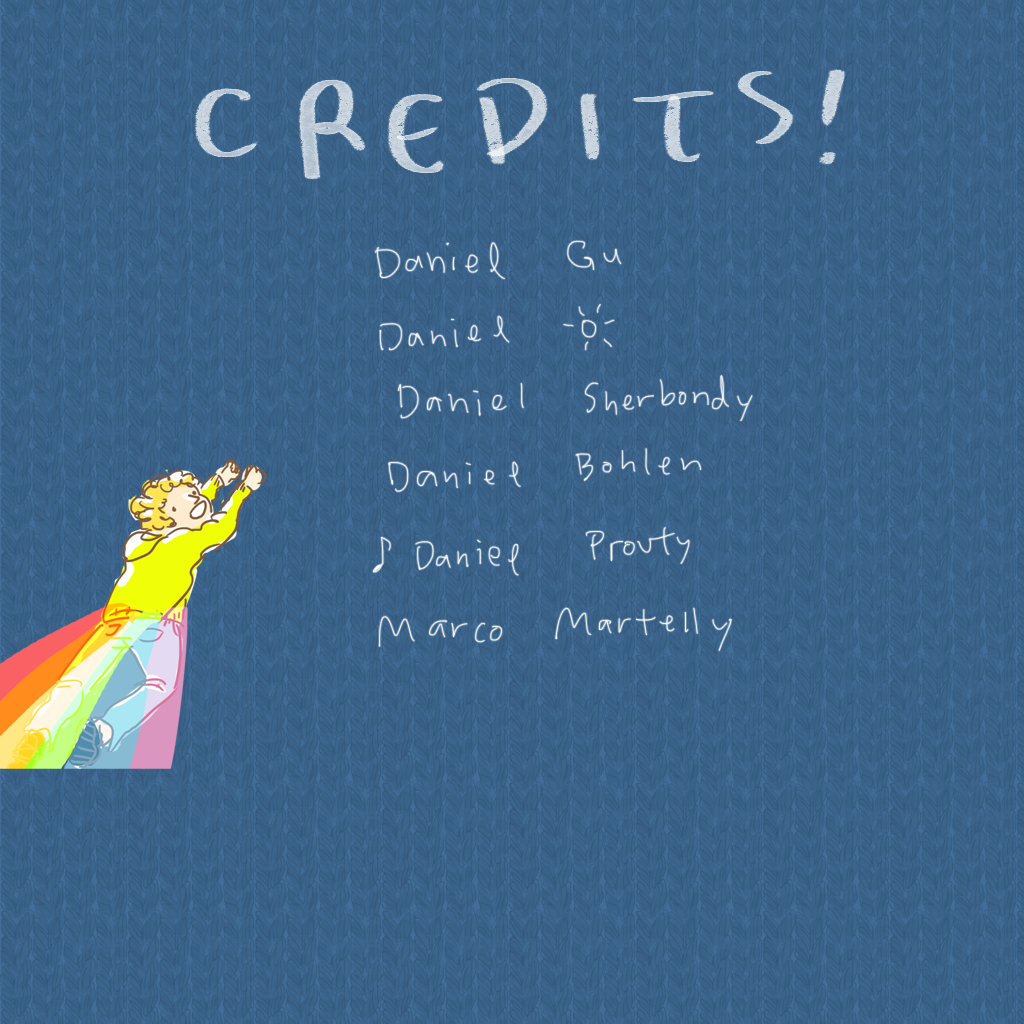 CREDITS!
Daniel Gu
Daniel
Daniel Sherbondy
Daniel Bohlen
♪ Daniel Prouty
Marco Martelly